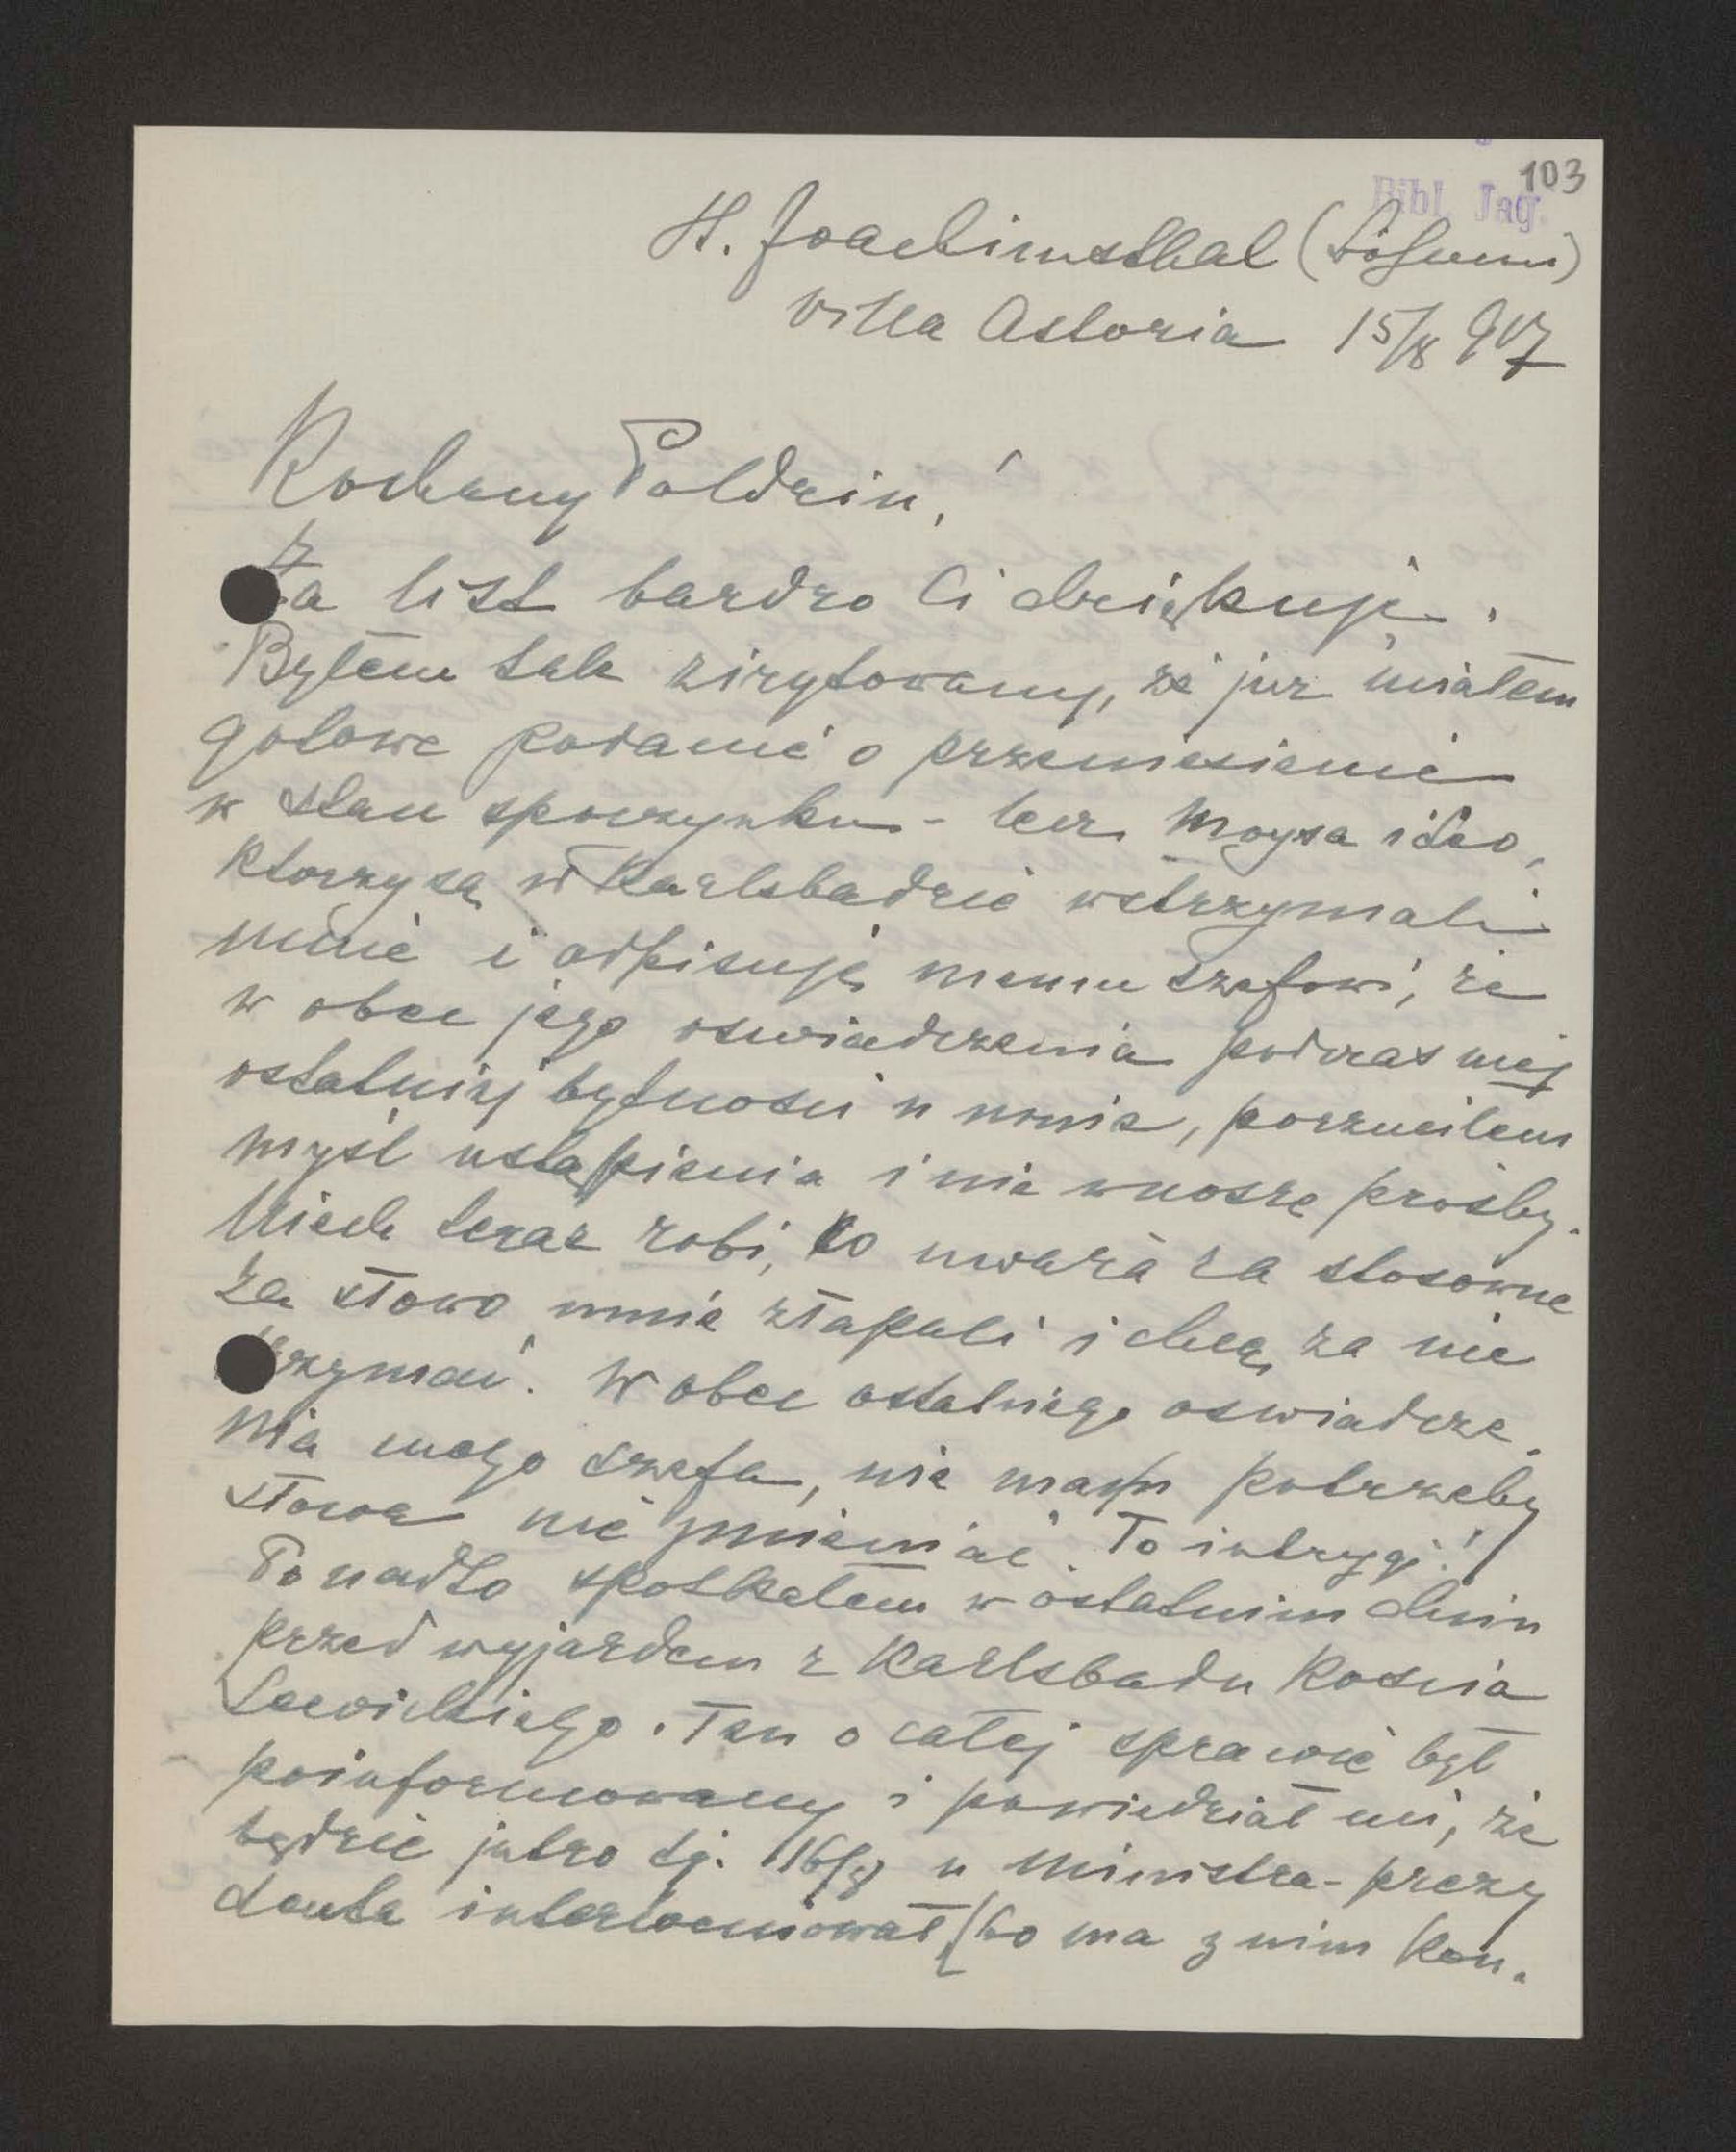 103
Bibl. Jag.
St. Joachimsthal (Böhmen)
Villa Astoria 15/8 907
Kochany Poldziu!
Za list bardzo Ci dziękuję.
Byłem tak zirytowany, że już miałem
gotowe podanie o przeniesienie
w stan spoczynku - lecz Moysa i Leo,
którzy są w Karlsbadzie wstrzymali
mnie i odpisuję memu szefowi, że
w obec jego oswiadczenia podczas mej
ostatniej bytności u niego, porzuciłem
myśl ustąpienia i nie wnoszę prośby.
Niech teraz robi, co uważa za stosowne
za słowo mnie złapali i chcą za nie
trzymać. W obec ostatniego oswiadcze-
nia mego szefa, nie mam potrzeby
słowa nie zmieniać. To intrygi!
Ponadto spotkałem w ostatnim dniu
przed wyjazdem z Karlsbadu Kościa
Lewickiego. Ten o całej sprawie był
poinformowany i powiedział mi, że
będzie jutro tj. 16/8 u Ministra-prezy
denta interweniował (bo ma z nim kon-